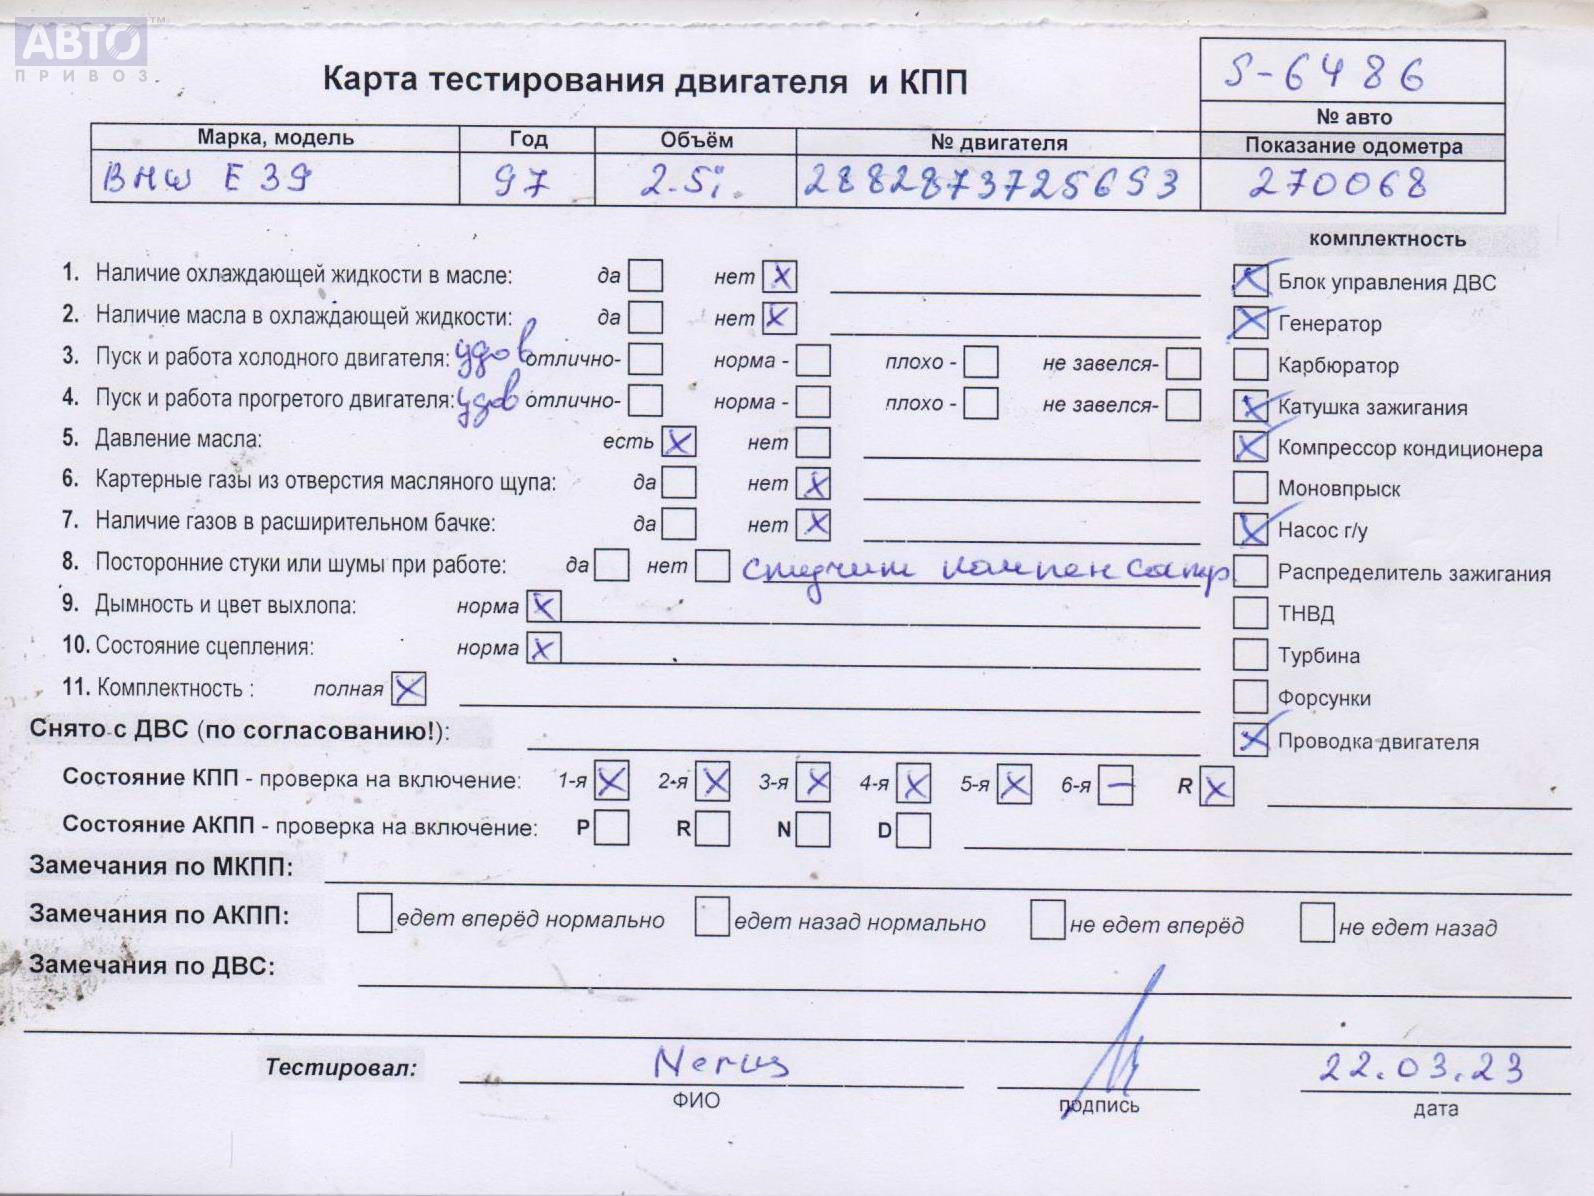 АВТО ™
ПРИВОЗ
Карта тестирования двигателя и КПП
S-6486
№ авто
Марка, модель Год Объём № двигателя Показание одометра
BMW E 39 97 2.5i 28828737725653 270068
комплектность
1. Наличие охлаждающей жидкости в масле: да нет X
2. Наличие масла в охлаждающей жидкости: да нет X
3. Пуск и работа холодного двигателя: удов отлично- норма - плохо - не завелся-
4. Пуск и работа прогретого двигателя: удов отлично- норма - плохо - не завелся-
5. Давление масла: есть X нет
6. Картерные газы из отверстия масляного щупа: да нет X
7. Наличие газов в расширительном бачке: да нет X
8. Посторонние стуки или шумы при работе: да нет стучит компенсатор
9. Дымность и цвет выхлопа: норма X
10. Состояние сцепления: норма X
11. Комплектность : полная X
X Блок управления ДВС
X Генератор
Карбюратор
X Катушка зажигания
X Компрессор кондиционера
Моновпрыск
X Насос г/у
Распределитель зажигания
ТНВД
Турбина
Форсунки
X Проводка двигателя
Снято с ДВС (по согласованию!):
Состояние КПП - проверка на включение: 1-я X 2-я X 3-я X 4-я X 5-я X 6-я — R X
Состояние АКПП - проверка на включение: P R N D
Замечания по МКПП:
Замечания по АКПП: едет вперёд нормально едет назад нормально не едет вперёд не едет назад
Замечания по ДВС:
Тестировал: 22.03.23
ФИО подпись дата